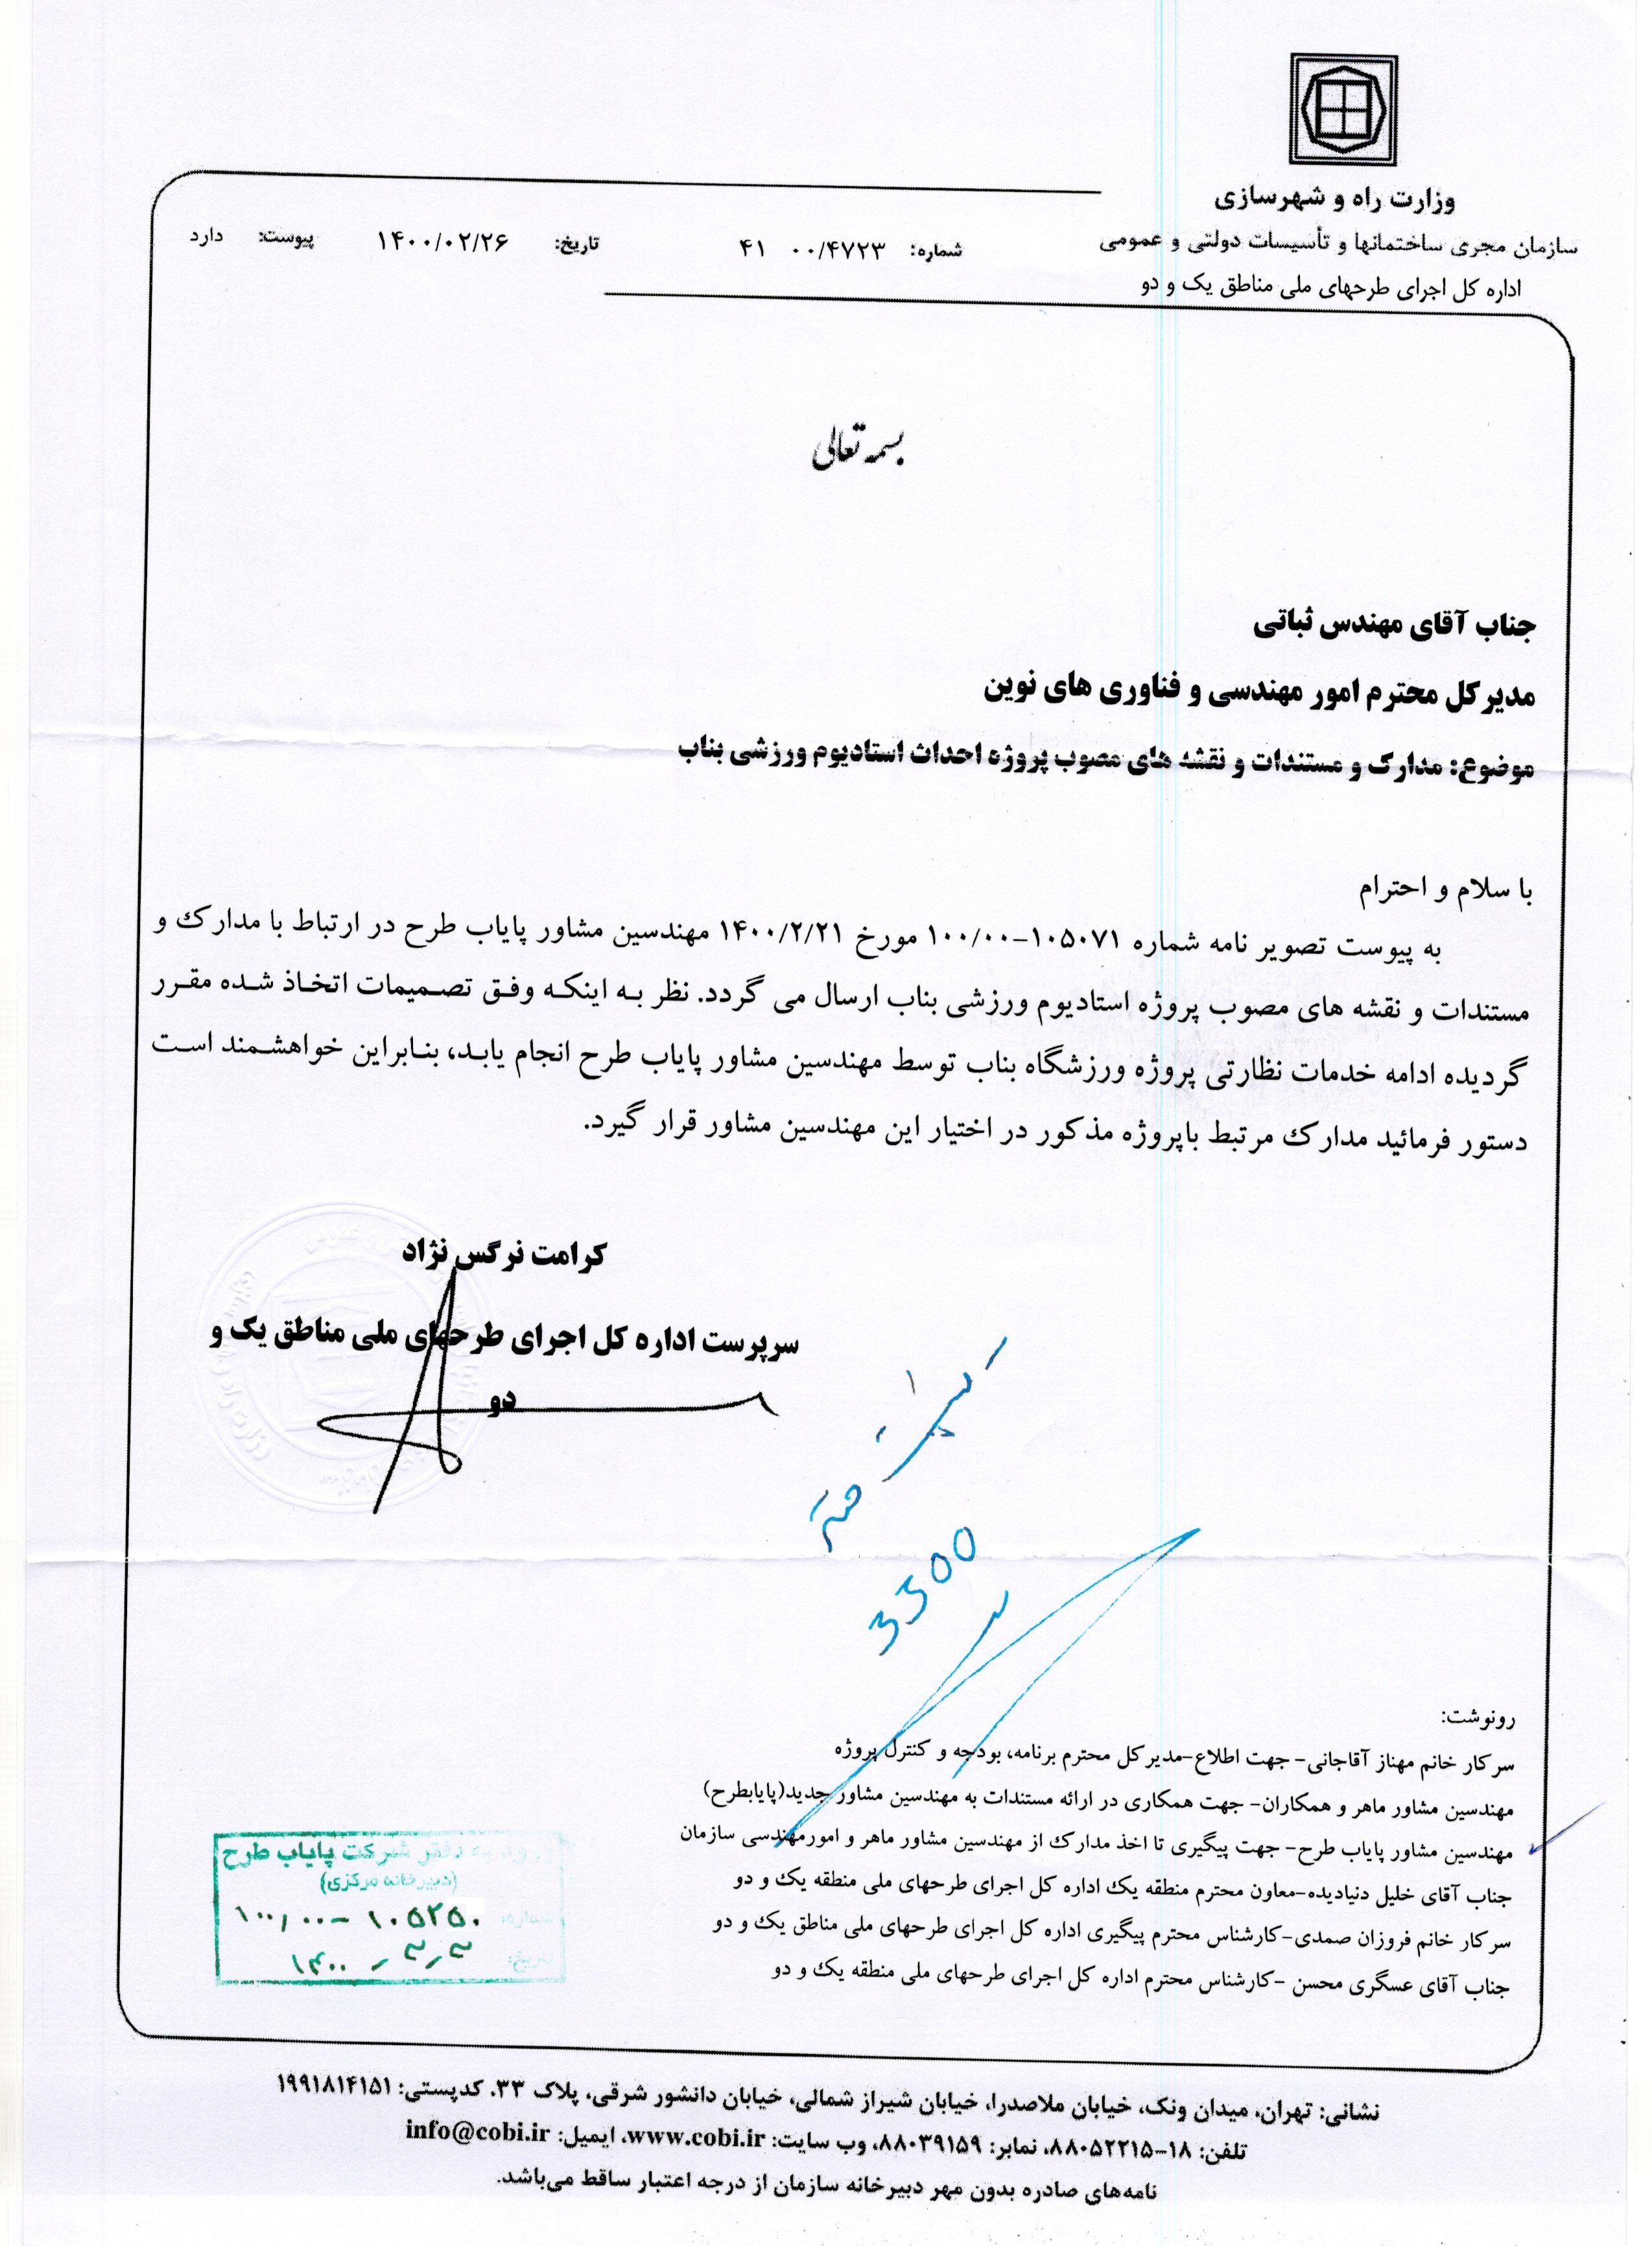 وزارت راه و شهرسازی
سازمان مجری ساختمانها و تأسیسات دولتی و عمومی
اداره کل اجرای طرحهای ملی مناطق یک و دو
شماره: ۰۰/۴۷۲۳ ۴۱
تاریخ: ۱۴۰۰/۰۲/۲۶
پیوست: دارد
بسمه تعالی
جناب آقای مهندس ثباتی
مدیرکل محترم امور مهندسی و فناوری های نوین
موضوع: مدارک و مستندات و نقشه های مصوب پروژه احداث استادیوم ورزشی بناب
با سلام و احترام
به پیوست تصویر نامه شماره ۱۰۵۰۷۱-۱۰۰/۰۰ مورخ ۱۴۰۰/۲/۲۱ مهندسین مشاور پایاب طرح در ارتباط با مدارک و
مستندات و نقشه های مصوب پروژه استادیوم ورزشی بناب ارسال می گردد. نظر به اینکه وفق تصمیمات اتخاذ شده مقرر
گردیده ادامه خدمات نظارتی پروژه ورزشگاه بناب توسط مهندسین مشاور پایاب طرح انجام یابد، بنابراین خواهشمند است
دستور فرمائید مدارک مرتبط باپروژه مذکور در اختیار این مهندسین مشاور قرار گیرد.
کرامت نرگس نژاد
سرپرست اداره کل اجرای طرحهای ملی مناطق یک و
دو
3300
رونوشت:
سرکار خانم مهناز آقاجانی- جهت اطلاع-مدیرکل محترم برنامه، بودجه و کنترل پروژه
مهندسین مشاور ماهر و همکاران- جهت همکاری در ارائه مستندات به مهندسین مشاور جدید(پایابطرح)
مهندسین مشاور پایاب طرح- جهت پیگیری تا اخذ مدارک از مهندسین مشاور ماهر و امورمهندسی سازمان
جناب آقای خلیل دنیادیده-معاون محترم منطقه یک اداره کل اجرای طرحهای ملی منطقه یک و دو
سرکار خانم فروزان صمدی-کارشناس محترم پیگیری اداره کل اجرای طرحهای ملی مناطق یک و دو
جناب آقای عسگری محسن -کارشناس محترم اداره کل اجرای طرحهای ملی منطقه یک و دو
به دفتر شرکت پایاب طرح
(دبیرخانه مرکزی)
شماره: ۱۰۰,۰۰ - ۱۰۵۲۵۰
تاریخ: ۱۴۰۰ - ۳ر۳
نشانی: تهران، میدان ونک، خیابان ملاصدرا، خیابان شیراز شمالی، خیابان دانشور شرقی، پلاک ۳۳. کدپستی: ۱۹۹۱۸۱۴۱۵۱
تلفن: ۱۸-۸۸۰۵۲۲۱۵، نمابر: ۸۸۰۳۹۱۵۹، وب سایت: www.cobi.ir، ایمیل: info@cobi.ir
نامه‌های صادره بدون مهر دبیرخانه سازمان از درجه اعتبار ساقط می‌باشد.